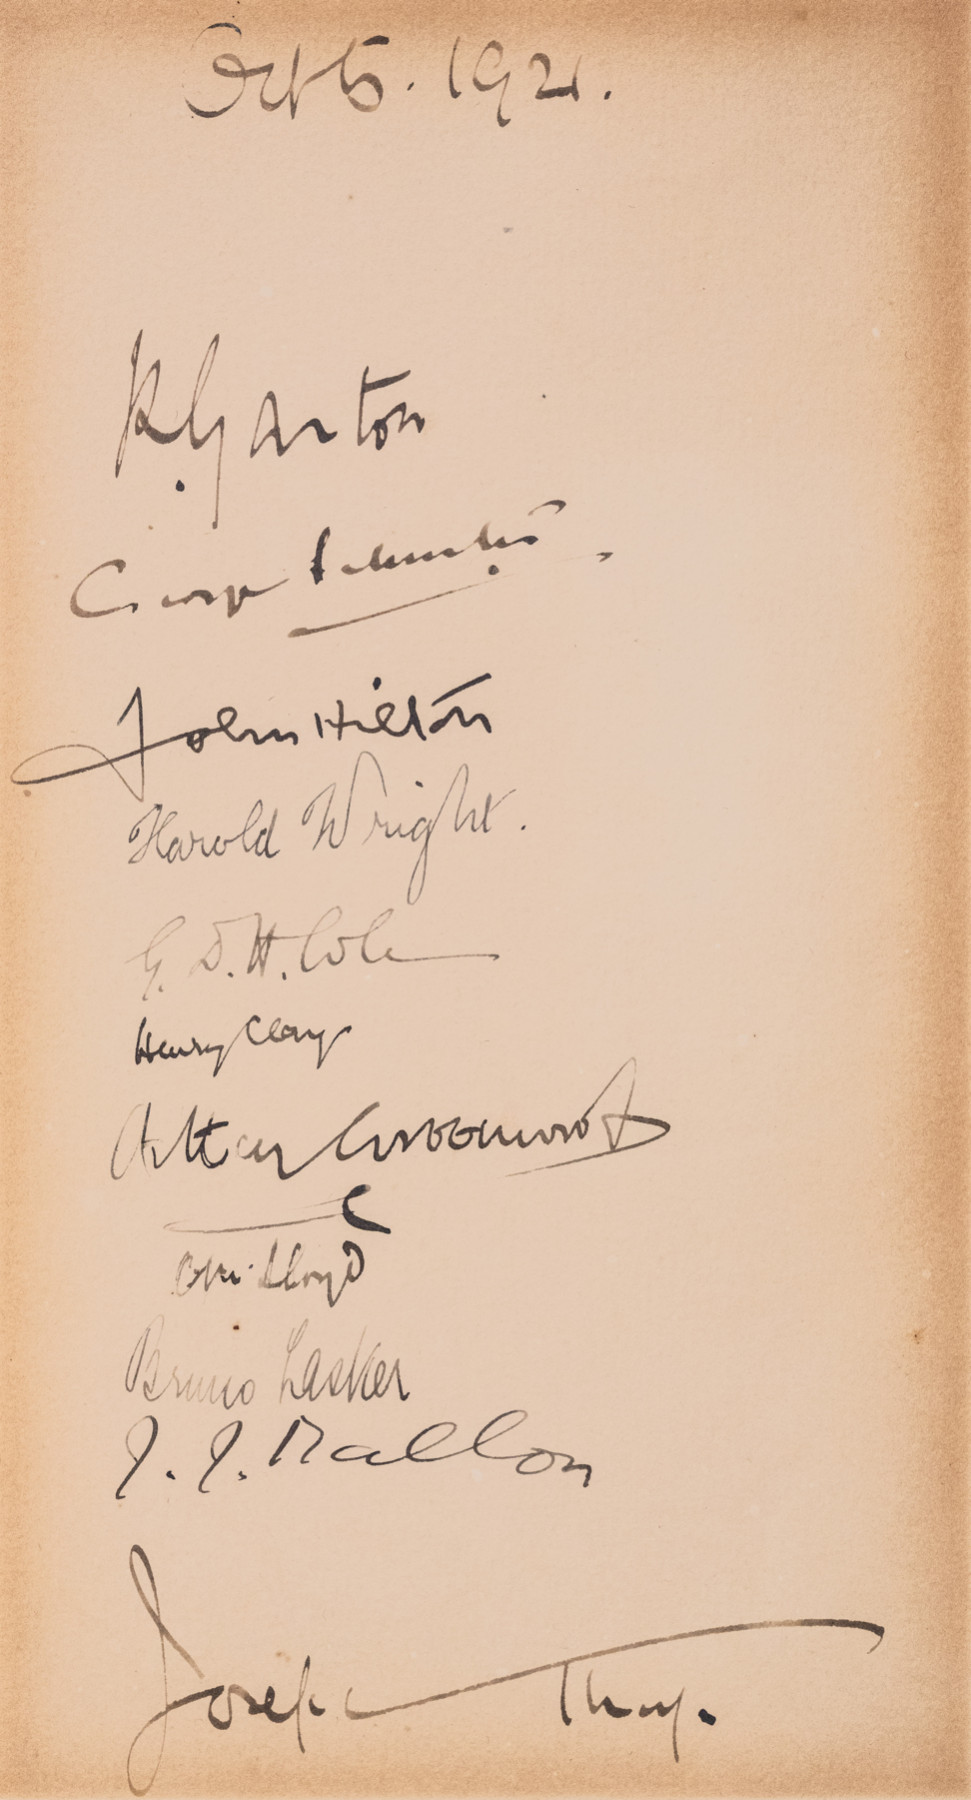 Oct 5. 1921.
R. Garton
George
John Hilton
Harold Wright.
G. D. H. Cole
Henry Clay
Arthur Greenwood
Lloyd
Bruno Lasker
J. J. Mallon
Joseph Thorp.